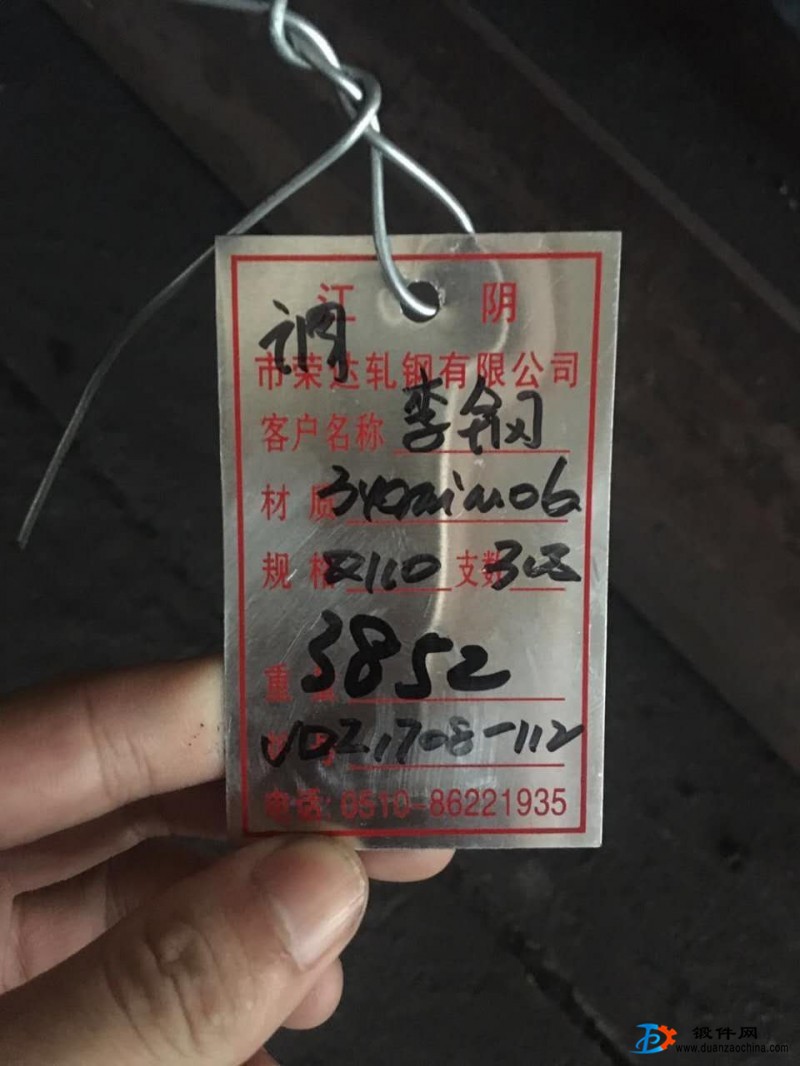 江 阴
调
市荣达轧钢有限公司
客户名称 李钢
材质 34CrNiMo6
规格 110 支数
重 3852
1708-112
电话: 0510-86221935
锻件网
www.duanzaochina.com